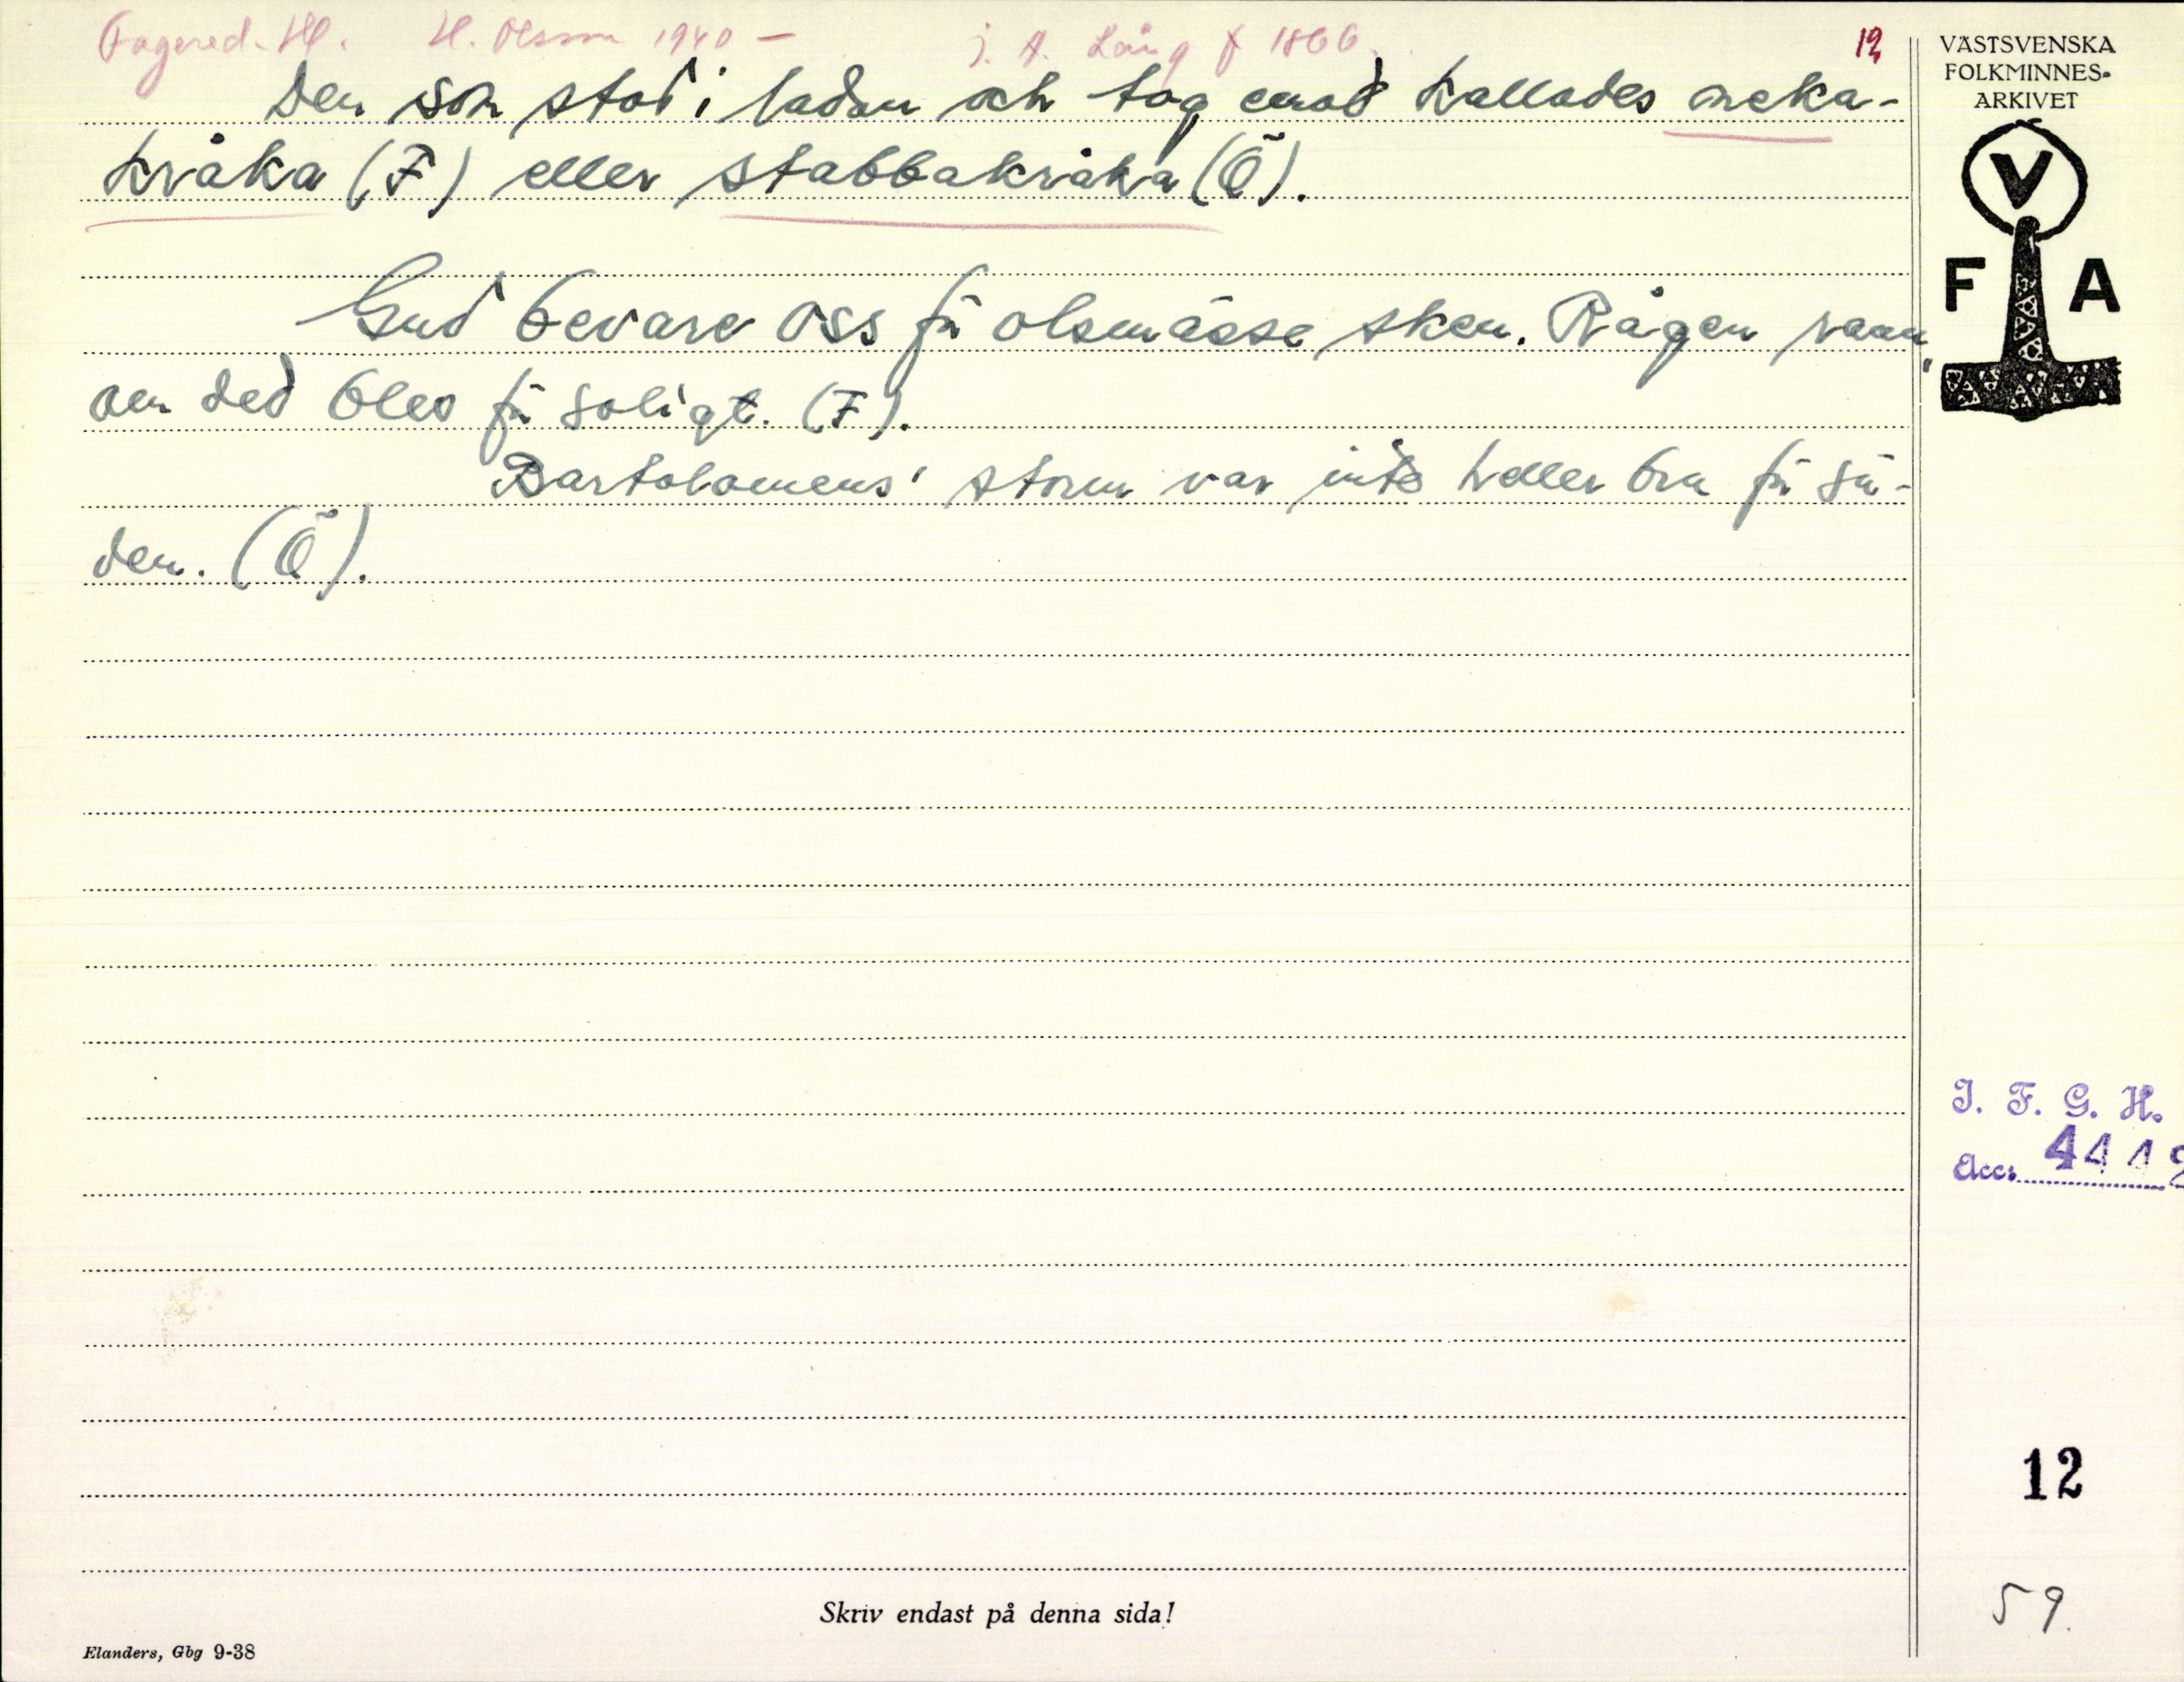 Fagered. Hl. H. Olsson 1940 — J. A. Lång f 1866. 12
Den som stod i ladan och tog emod kallades
kråka (F) eller stabbakråka (Ö).
Gud bevare oss för olsmässe sken. Rågen rann,
om ded blev för soligt. (F).
Bartolomeus' storm var inte heller bra för sä-
den. (Ö).
VÄSTSVENSKA
FOLKMINNES-
ARKIVET
V
F A
I. F. G. H.
Acc:
12
59.
Skriv endast på denna sida!
Elanders, Gbg 9-38